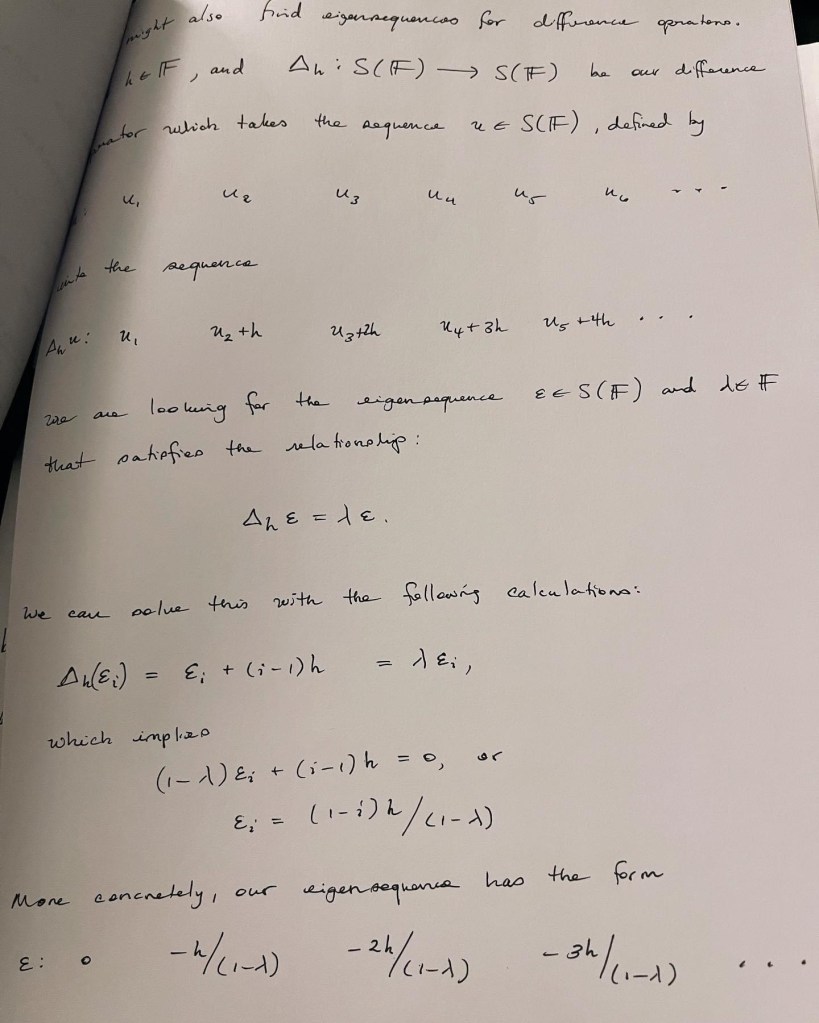 might also find eigensequences for difference operators.
h ∈ 𝔽, and Δₕ : S(𝔽) ⟶ S(𝔽) be our difference
which takes the sequence u ∈ S(𝔽), defined by
u₁ u₂ u₃ u₄ u₅ u₆ ...
into the sequence
Δₕu: u₁ u₂+h u₃+2h u₄+3h u₅+4h ...
we are looking for the eigensequence ε ∈ S(𝔽) and λ ∈ 𝔽
that satisfies the relationship:
Δₕ ε = λ ε.
We can solve this with the following calculations:
Δₕ(εᵢ) = εᵢ + (i-1)h = λ εᵢ,
which implies
(1-λ) εᵢ + (i-1) h = 0, or
εᵢ = (1-i) h/(1-λ)
More concretely, our eigensequence has the form
ε: 0 -h/(1-λ) -2h/(1-λ) -3h/(1-λ) ...